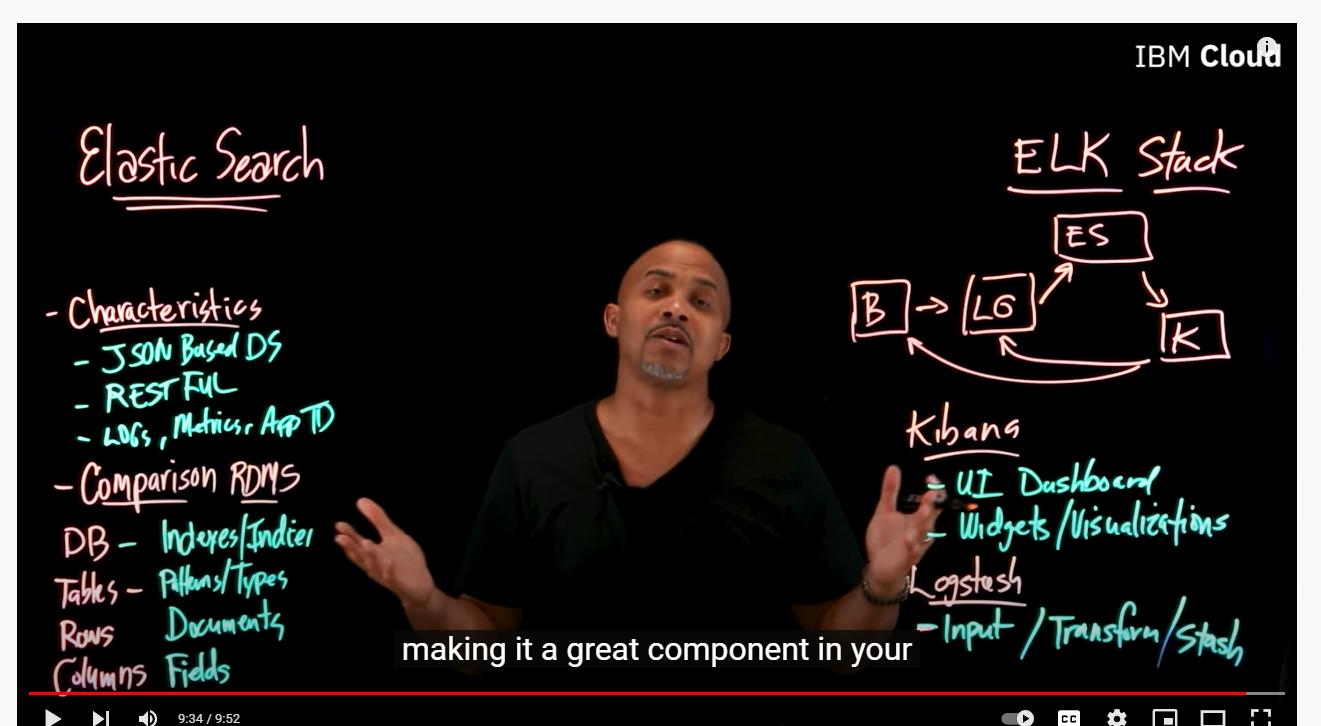 IBM Cloud
Elastic Search
- Characteristics
- JSON Based DS
- RESTFUL
- LOGs, Metrics, App TD
- Comparison RDMS
DB - Indexes/Indicer
Tables - Patterns/Types
Rows Documents
Columns Fields
ELK Stack
ES
B
LG
K
Kibana
- UI Dashboard
- Widgets/Visualizations
Logstash
- Input / Transform / Stash
making it a great component in your
9:34 / 9:52
CC